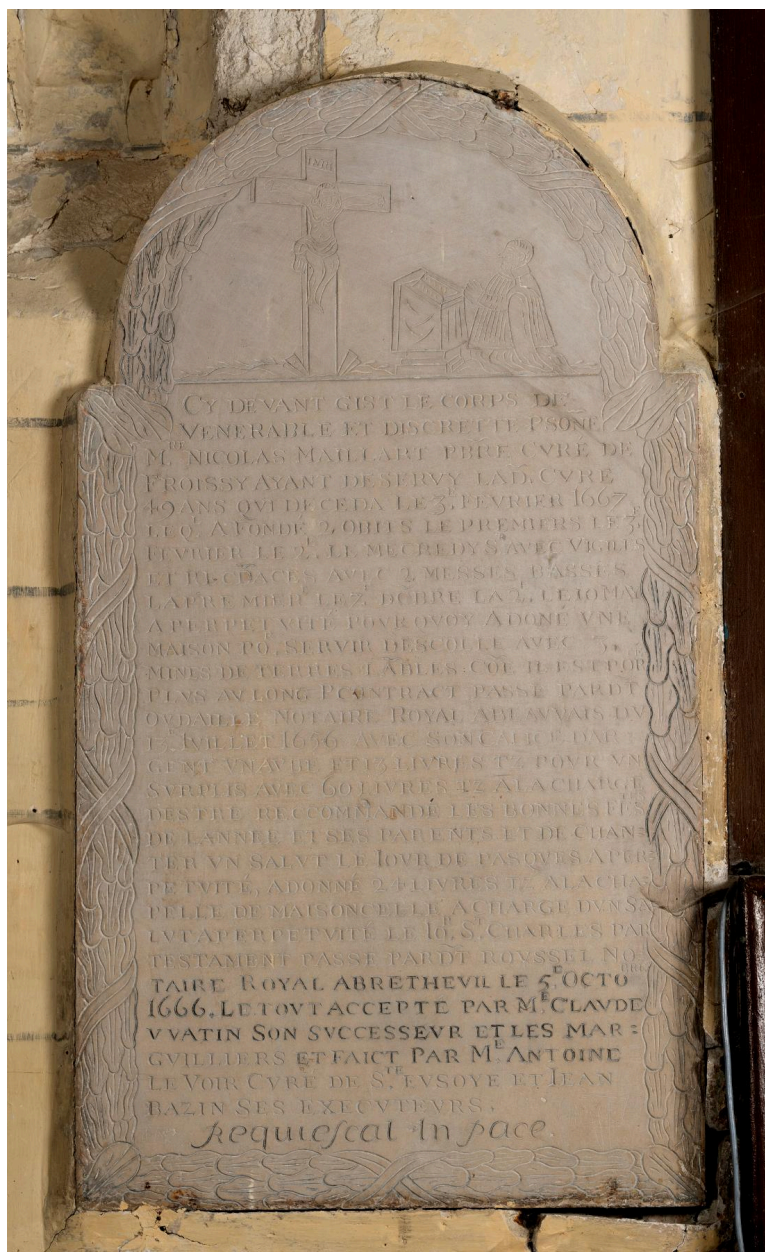 INRI
CY DEVANT GIST LE CORPS DE
VENERABLE ET DISCRETTE PSONE
M.RE NICOLAS MAILLART PBRE CVRE DE
FROISSY AYANT DESERVY LAD. CVRE
49 ANS QVI DECEDA LE 3.E FEVRIER 1667
LEQ.L A FONDE 2 OBITS LE PREMIERS LE 3.E
FEVRIER LE 2.E LE MECREDY S.T AVEC VIGILES
ET AVEC 2 MESSES BASSES
LA PREMIER LE 2.E LA 2.E LE 10 MAY
A PERPETVITÉ POVR QVOY A DONÉ VNE
MAISON PO.R SERVIR DESCOLLE AVEC 3
MINES DE TERRES LABLES COE IL EST POR
PLVS AV LONG P CONTRACT PASSÉ PARDT
OVDAILLE NOTAIRE ROYAL A BEAVVAIS DV
IVILLET 1656 AVEC SON CALICE DAR
GENT VN AVBE ET LIVRES TZ POVR VN
SVRPLIS AVEC 60 LIVRES TZ A LA CHARGE
DESTRE RECCOMMANDÉ LES BONNES FES
DE LANNEE ET SES PARENTS ET DE CHAN
TER VN SALVT LE IOVR DE PASQVES A PER
PETVITÉ, A DONNÉ 24 LIVRES TZ A LA CHA
PELLE DE MAISONCELLE A CHARGE DVN SA
LVT A PERPETVITÉ LE IO.R S.T CHARLES PAR
TESTAMENT PASSÉ PARDT ROVSSEL NO
TAIRE ROYAL ABRETHEVIL LE 5.E OCTO.BRE
1666. LE TOVT ACCEPTE PAR M.E CLAVDE
VVATIN SON SVCCESSEVR ET LES MAR=
GVILLIERS ET FAICT PAR M.E ANTOINE
LE VOIR CVRE DE S.TE EVSOYE ET IEAN
BAZIN SES EXECVTEVRS.
Requiescat In pace.